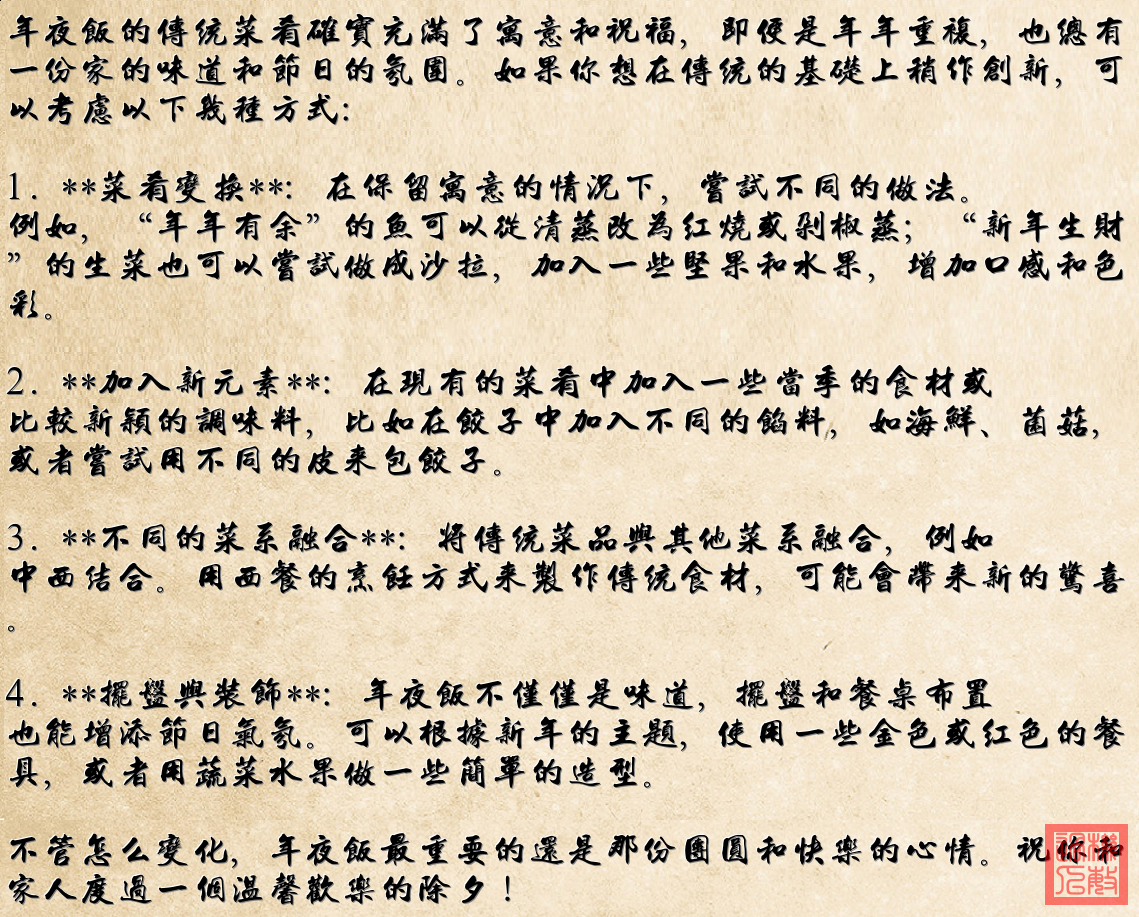 年夜飯的傳統菜肴確實充滿了寓意和祝福，即便是年年重複，也總有
一份家的味道和節日的氛圍。如果你想在傳統的基礎上稍作創新，可
以考慮以下幾種方式：
1. **菜肴變換**：在保留寓意的情況下，嘗試不同的做法。
例如，“年年有余”的魚可以從清蒸改為紅燒或剁椒蒸；“新年生財
”的生菜也可以嘗試做成沙拉，加入一些堅果和水果，增加口感和色
彩。
2. **加入新元素**：在現有的菜肴中加入一些當季的食材或
比較新穎的調味料，比如在餃子中加入不同的餡料，如海鮮、菌菇，
或者嘗試用不同的皮來包餃子。
3. **不同的菜系融合**：將傳統菜品與其他菜系融合，例如
中西結合。用西餐的烹飪方式來製作傳統食材，可能會帶來新的驚喜
。
4. **擺盤與裝飾**：年夜飯不僅僅是味道，擺盤和餐桌布置
也能增添節日氣氛。可以根據新年的主題，使用一些金色或紅色的餐
具，或者用蔬菜水果做一些簡單的造型。
不管怎么變化，年夜飯最重要的還是那份團圓和快樂的心情。祝你和
家人度過一個溫馨歡樂的除夕！